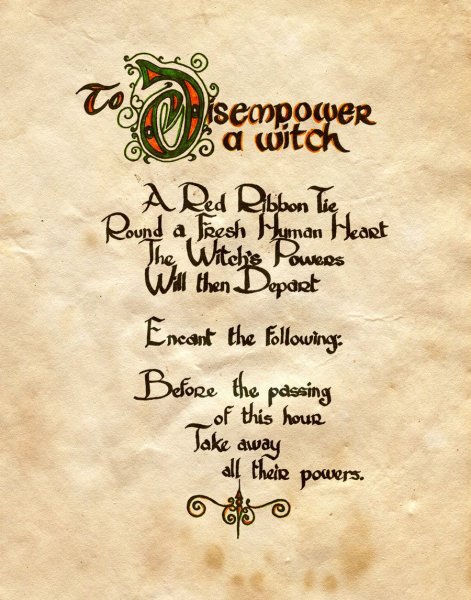 To Disempower
a witch
A Red Ribbon Tie
Round a Fresh Human Heart
The Witch's Powers
Will then Depart
Encant the following:
Before the passing
of this hour
Take away
all their powers.